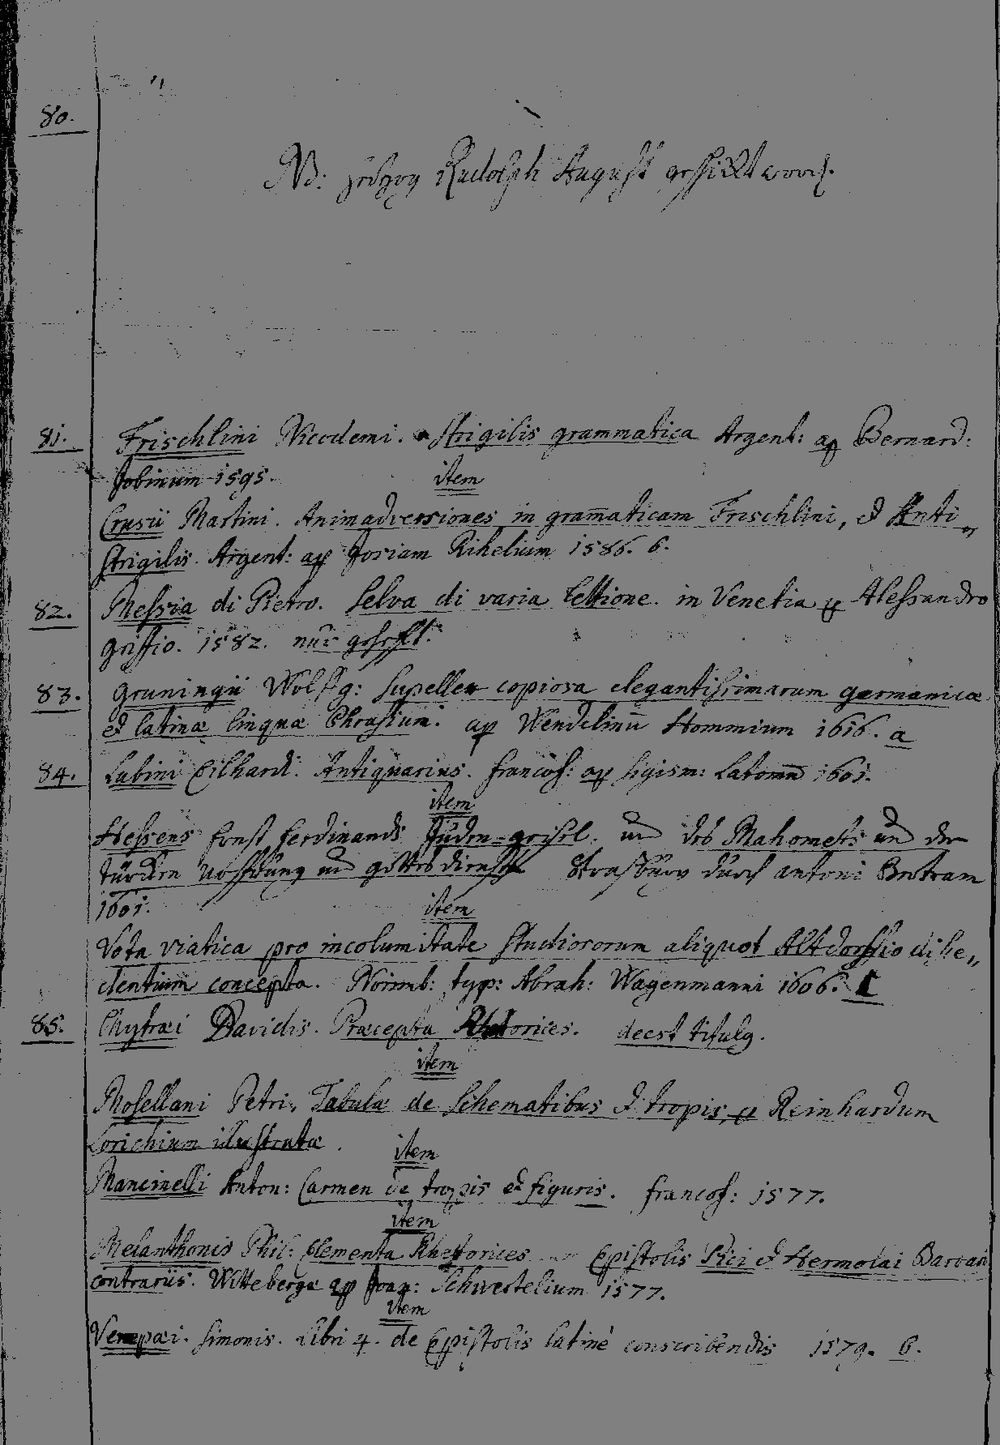 80.
NB: Herzog Rudolph August geschickt word.
81. Frischlini Nicodemi. Strigilis grammatica Argent: ap Bernard:
Jobinum 1595.
item
Crusii Martini. Animadversiones in gram̄aticam Frischlini, et Anti„
strigilis. Argent: ap Josiam Rihelium 1586. 6.
82. Messia di Pietro. Selva di varia lettione. in Venetia p Alessandro
griffio. 1582. nur gehefft.
83. Gruningii Wolfg: Supellex copiosa elegantissimarum germanicæ
et latinæ linguæ Phrasium. ap Wendelinū Hommium 1616. a
84. Lubini Eilhardi. Antiquarius. francof: ap sigism: Latomū 1601.
item
Hessens Ernst Ferdinands Juden-geisel. und des Mahomets und der
türcken Hoffnung und gottesdienst Strasburg durch antoni Bertram
1601.
item
Vota viatica pro incolumitate Studiosorum aliquot Altdorffio disce„
dentium concepta. Norimb: typ: Abrah: Wagenmanni 1606.
85. Chytræi Davidis. Præcepta Rhetorices. deest titulg.
item
Mosellani Petri. Tabulæ de Schematibus et tropis, p Reinhardum
Lorichium illustratæ.
item
Mancinelli Anton: Carmen de tropis et figuris. francof: 1577.
item
Melanthonis Phil: Elementa Rhetorices Epistolis Pici et Hermolai Barbari
contrariis. Witteberga ap Joa: Schwertelium 1577.
item
Verepæi. Simonis. Libri 4. de Epistolis latinè conscribendis 1579. 6.